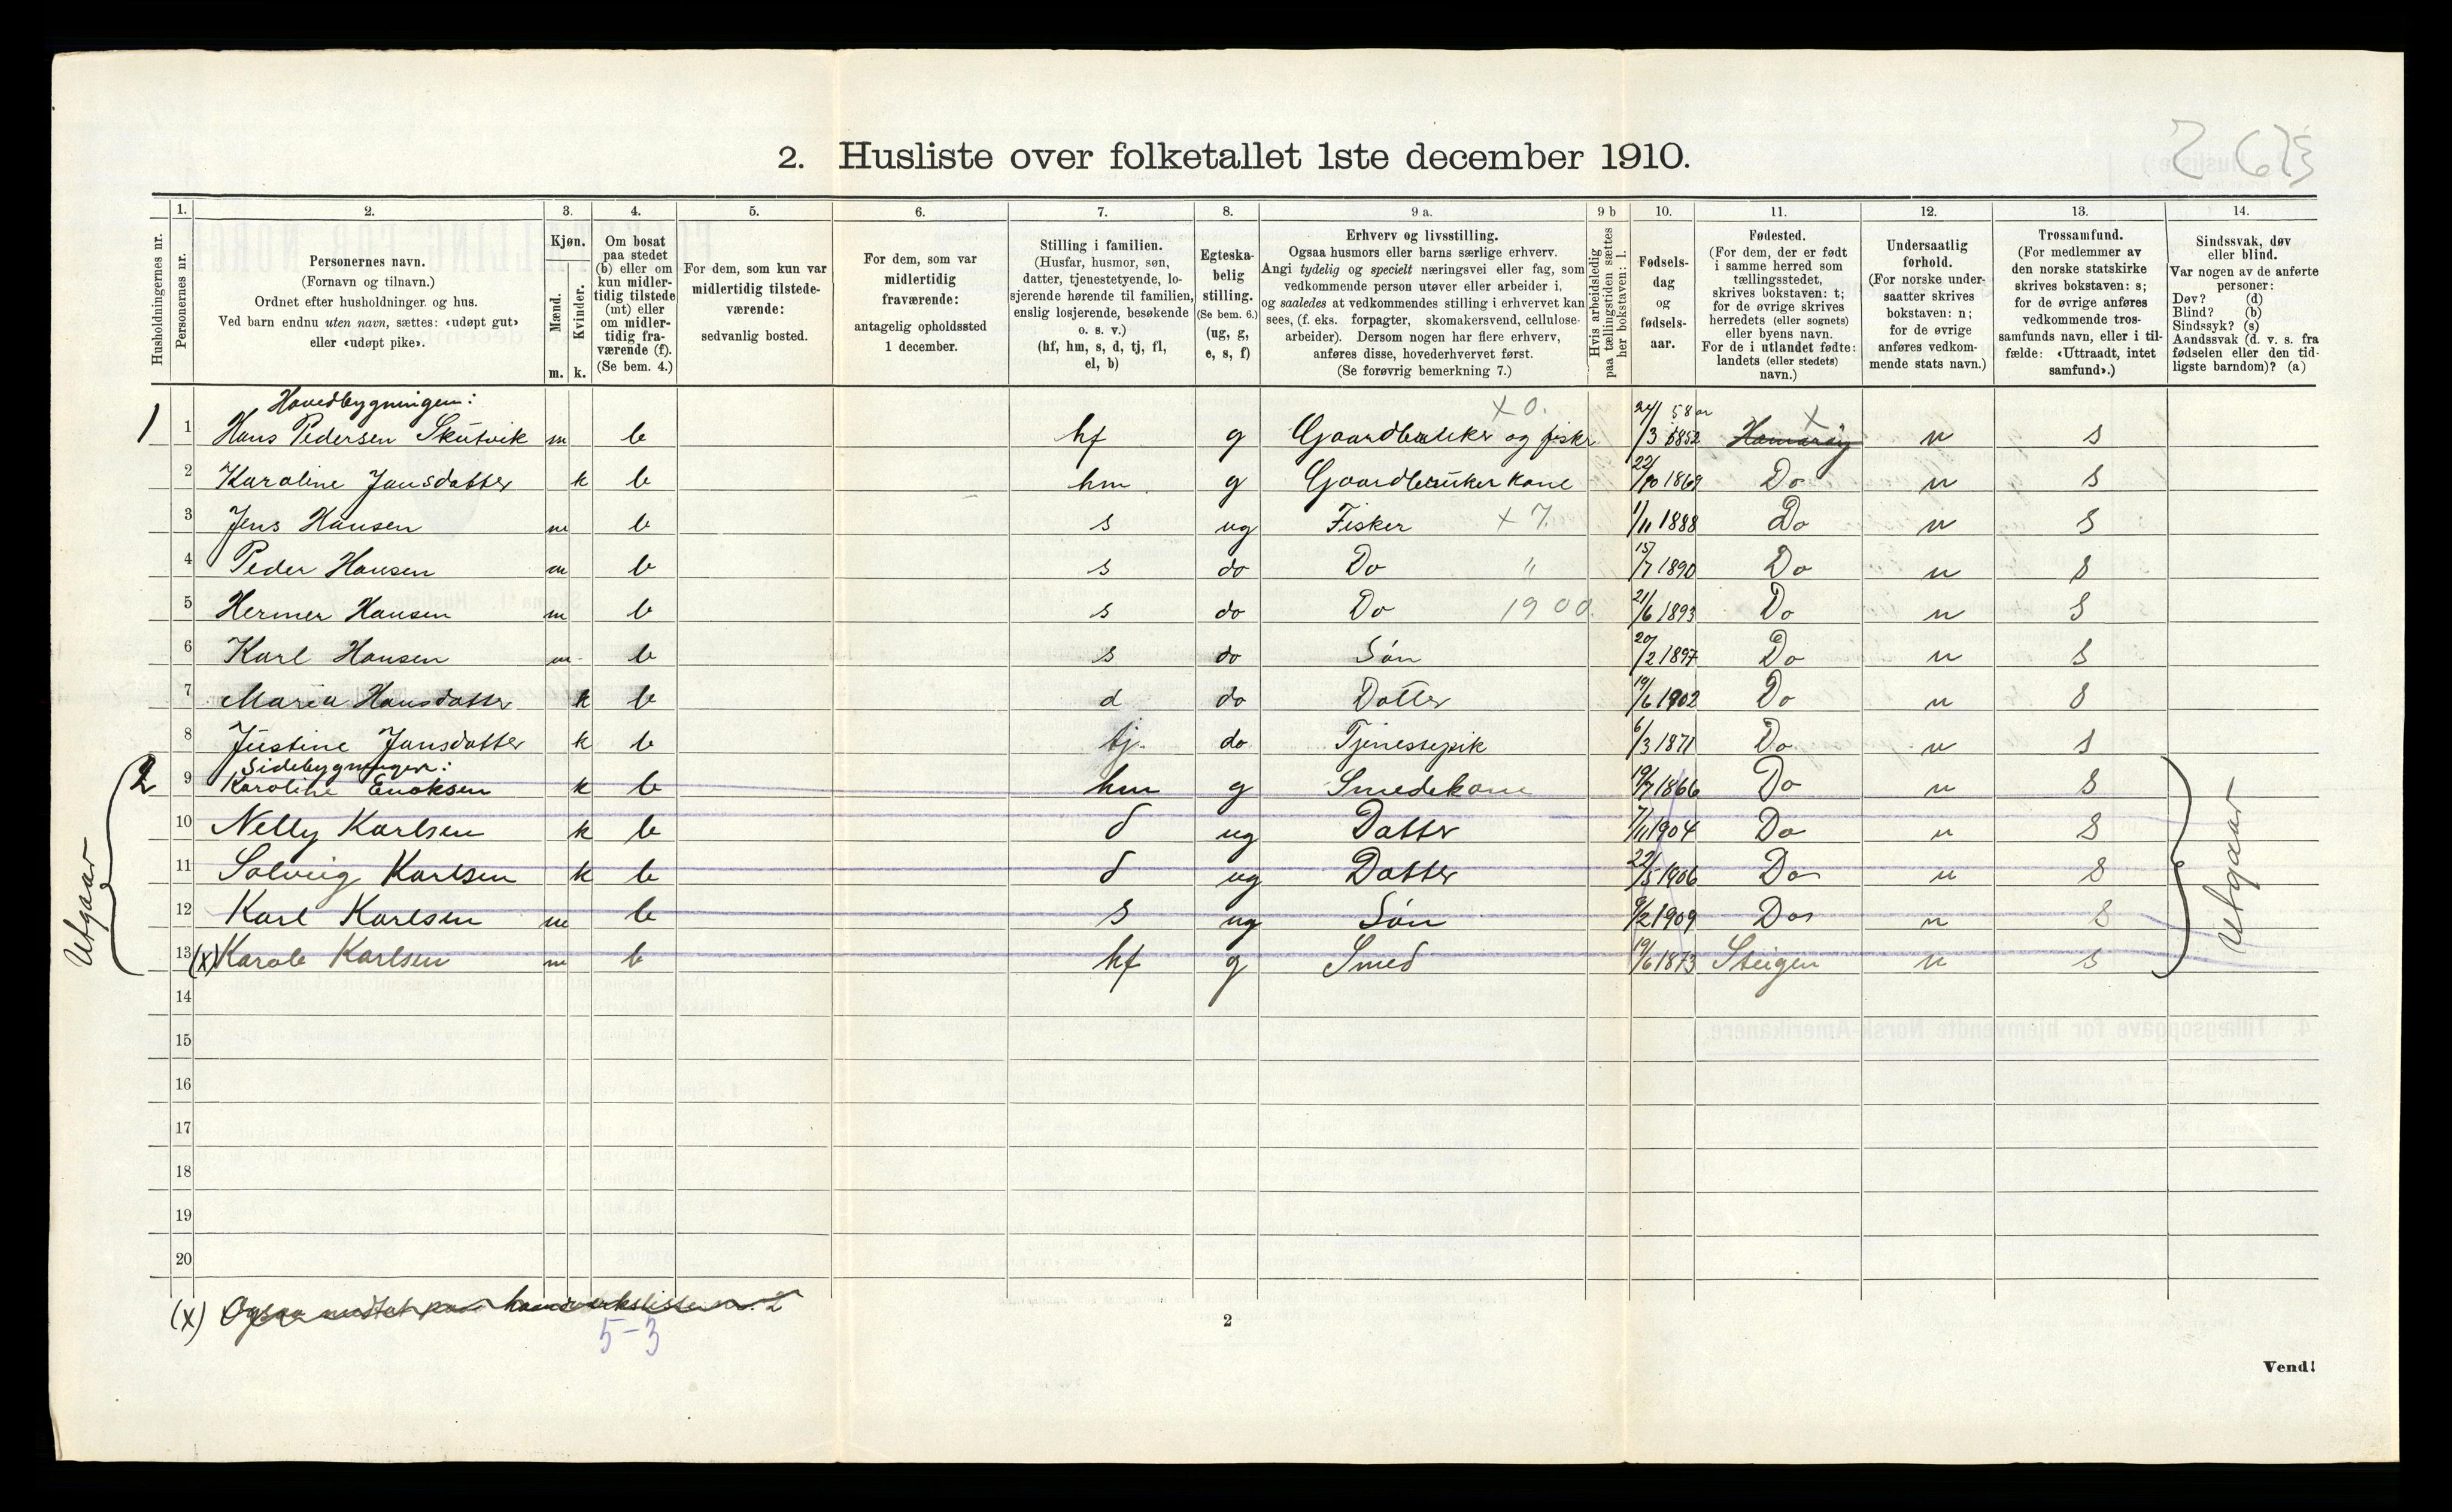 2. Husliste over folketallet 1ste december 1910.
Husholdningernes nr.
1. Personernes nr.
2. Personernes navn.
(Fornavn og tilnavn.)
Ordnet efter husholdninger og hus.
Ved barn endnu uten navn, sættes: «udøpt gut»
eller «udøpt pike».
3. Kjøn.
Mænd. m.
Kvinder. k.
4. Om bosat
paa stedet
(b) eller om
kun midler-
tidig tilstede
(mt) eller
om midler-
tidig fra-
værende (f).
(Se bem. 4.)
5. For dem, som kun var
midlertidig tilstede-
værende:
sedvanlig bosted.
6. For dem, som var
midlertidig
fraværende:
antagelig opholdssted
1 december.
7. Stilling i familien.
(Husfar, husmor, søn,
datter, tjenestetyende, lo-
sjerende hørende til familien,
enslig losjerende, besøkende
o. s. v.)
(hf, hm, s, d, tj, fl,
el, b)
8. Egteska-
belig
stilling.
(Se bem. 6.)
(ug, g,
e, s, f)
9 a. Erhverv og livsstilling.
Ogsaa husmors eller barns særlige erhverv.
Angi tydelig og specielt næringsvei eller fag, som
vedkommende person utøver eller arbeider i,
og saaledes at vedkommendes stilling i erhvervet kan
sees, (f. eks. forpagter, skomakersvend, cellulose-
arbeider). Dersom nogen har flere erhverv,
anføres disse, hovederhvervet først.
(Se forøvrig bemerkning 7.)
9 b Hvis arbeidsledig
paa tællingstiden sættes
her bokstaven: l.
10. Fødsels-
dag
og
fødsels-
aar.
11. Fødested.
(For dem, der er født
i samme herred som
tællingsstedet,
skrives bokstaven: t;
for de øvrige skrives
herredets (eller sognets)
eller byens navn.
For de i utlandet fødte:
landets (eller stedets)
navn.)
12. Undersaatlig
forhold.
(For norske under-
saatter skrives
bokstaven: n;
for de øvrige
anføres vedkom-
mende stats navn.)
13. Trossamfund.
(For medlemmer av
den norske statskirke
skrives bokstaven: s;
for de øvrige anføres
vedkommende tros-
samfunds navn, eller i til-
fælde: «Uttraadt, intet
samfund».)
14. Sindssvak, døv
eller blind.
Var nogen av de anførte
personer:
Døv? (d)
Blind? (b)
Sindssyk? (s)
Aandssvak (d. v. s. fra
fødselen eller den tid-
ligste barndom)? (a)
Hovedbygningen: x 0. 58 aar x
1 1 Hans Pedersen Skutvik m b hf g Gaardbruker og fisker 24/3 1852 Hamarøy n s
2 Karoline Jansdatter k b hm g Gaardbruker kone 22/10 1869 Do n s
3 Jens Hansen m b s ug Fisker x 7. 1/11 1888 Do n s
4 Peder Hansen m b s do Do " 15/7 1890 Do n s
5 Hermer Hansen m b s do Do 1900. 21/6 1893 Do n s
6 Karl Hansen m b s do Søn 20/2 1897 Do n s
7 Maria Hansdatter k b d do Datter 19/6 1902 Do n s
8 Justine Jansdatter k b tj. do Tjenestepik 6/3 1871 Do n s
Sidebygningen:
2 9 Karoline Enoksen k b hm g Smedekone 19/7 1866 Do n s
10 Nelly Karlsen k b d ug Datter 7/11 1904 Do n s
11 Solveig Karlsen k b d ug Datter 22/5 1906 Do n s
12 Karl Karlsen m b s ug Søn 9/2 1909 Do n s
13 (x) Karole Karlsen m b hf g Smed 19/6 1873 Steigen n s
Utgaar
Utgaar
14
15
16
17
18
19
20
(x) Ogsaa
5-3
2
Vend!